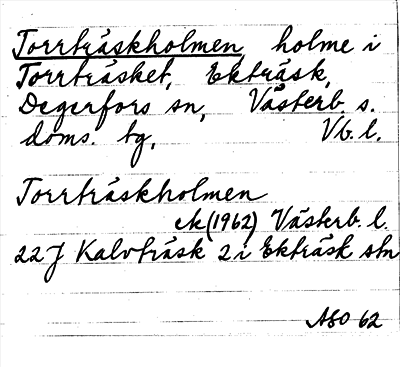 Torrträskholmen, holme i
Torrträsket, Ekträsk,
Degerfors sn, Västerb. s.
doms. tg, Vb. l.
Torrträskholmen
ek (1962) Västerb. l.
22J Kalvträsk 2 i Ekträsk stn
ASO 62